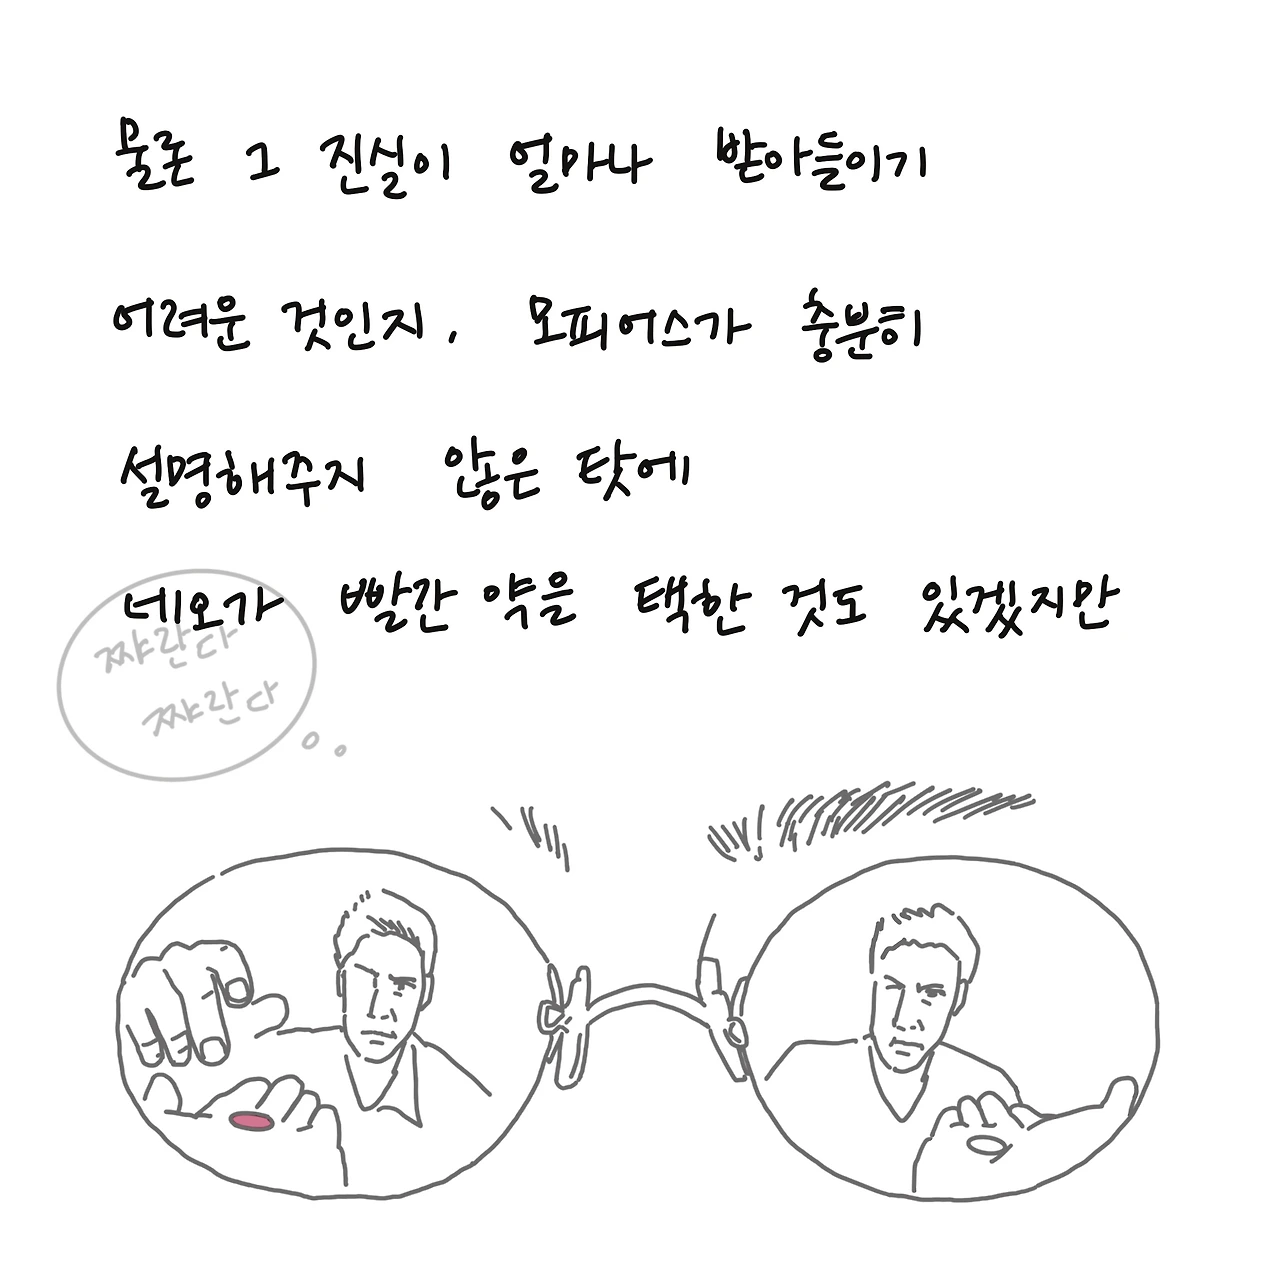 물론 그 진실이 얼마나 받아들이기
어려운 것인지, 모피어스가 충분히
설명해주지 않은 탓에
네오가 빨간 약을 택한 것도 있겠지만
쨔란다
쨔란다